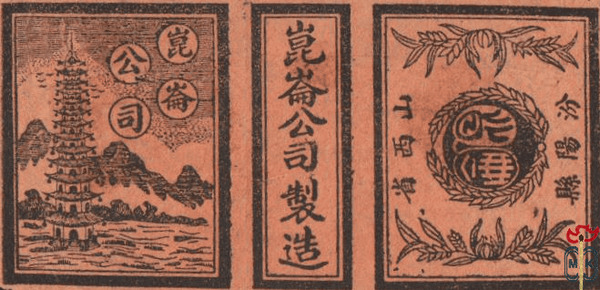 崑崙
公司
崑崙公司製造
山西省
汾陽縣
M